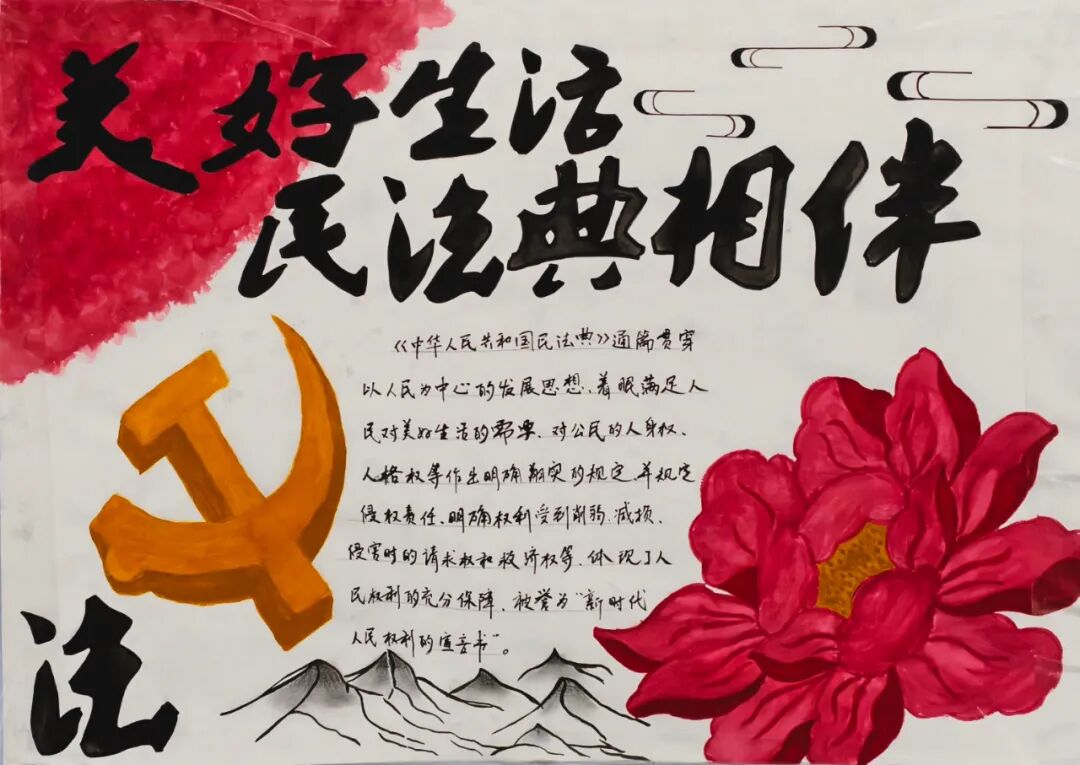 美好生活
民法典相伴
《中华人民共和国民法典》通篇贯穿
以人民为中心的发展思想、着眼满足人
民对美好生活的需要、对公民的人身权、
人格权等作出明确翔实的规定,并规定
侵权责任、明确权利受到削弱、减损、
侵害时的请求权和救济权等、体现了人
民权利的充分保障、被誉为“新时代
人民权利的宣言书”。
法